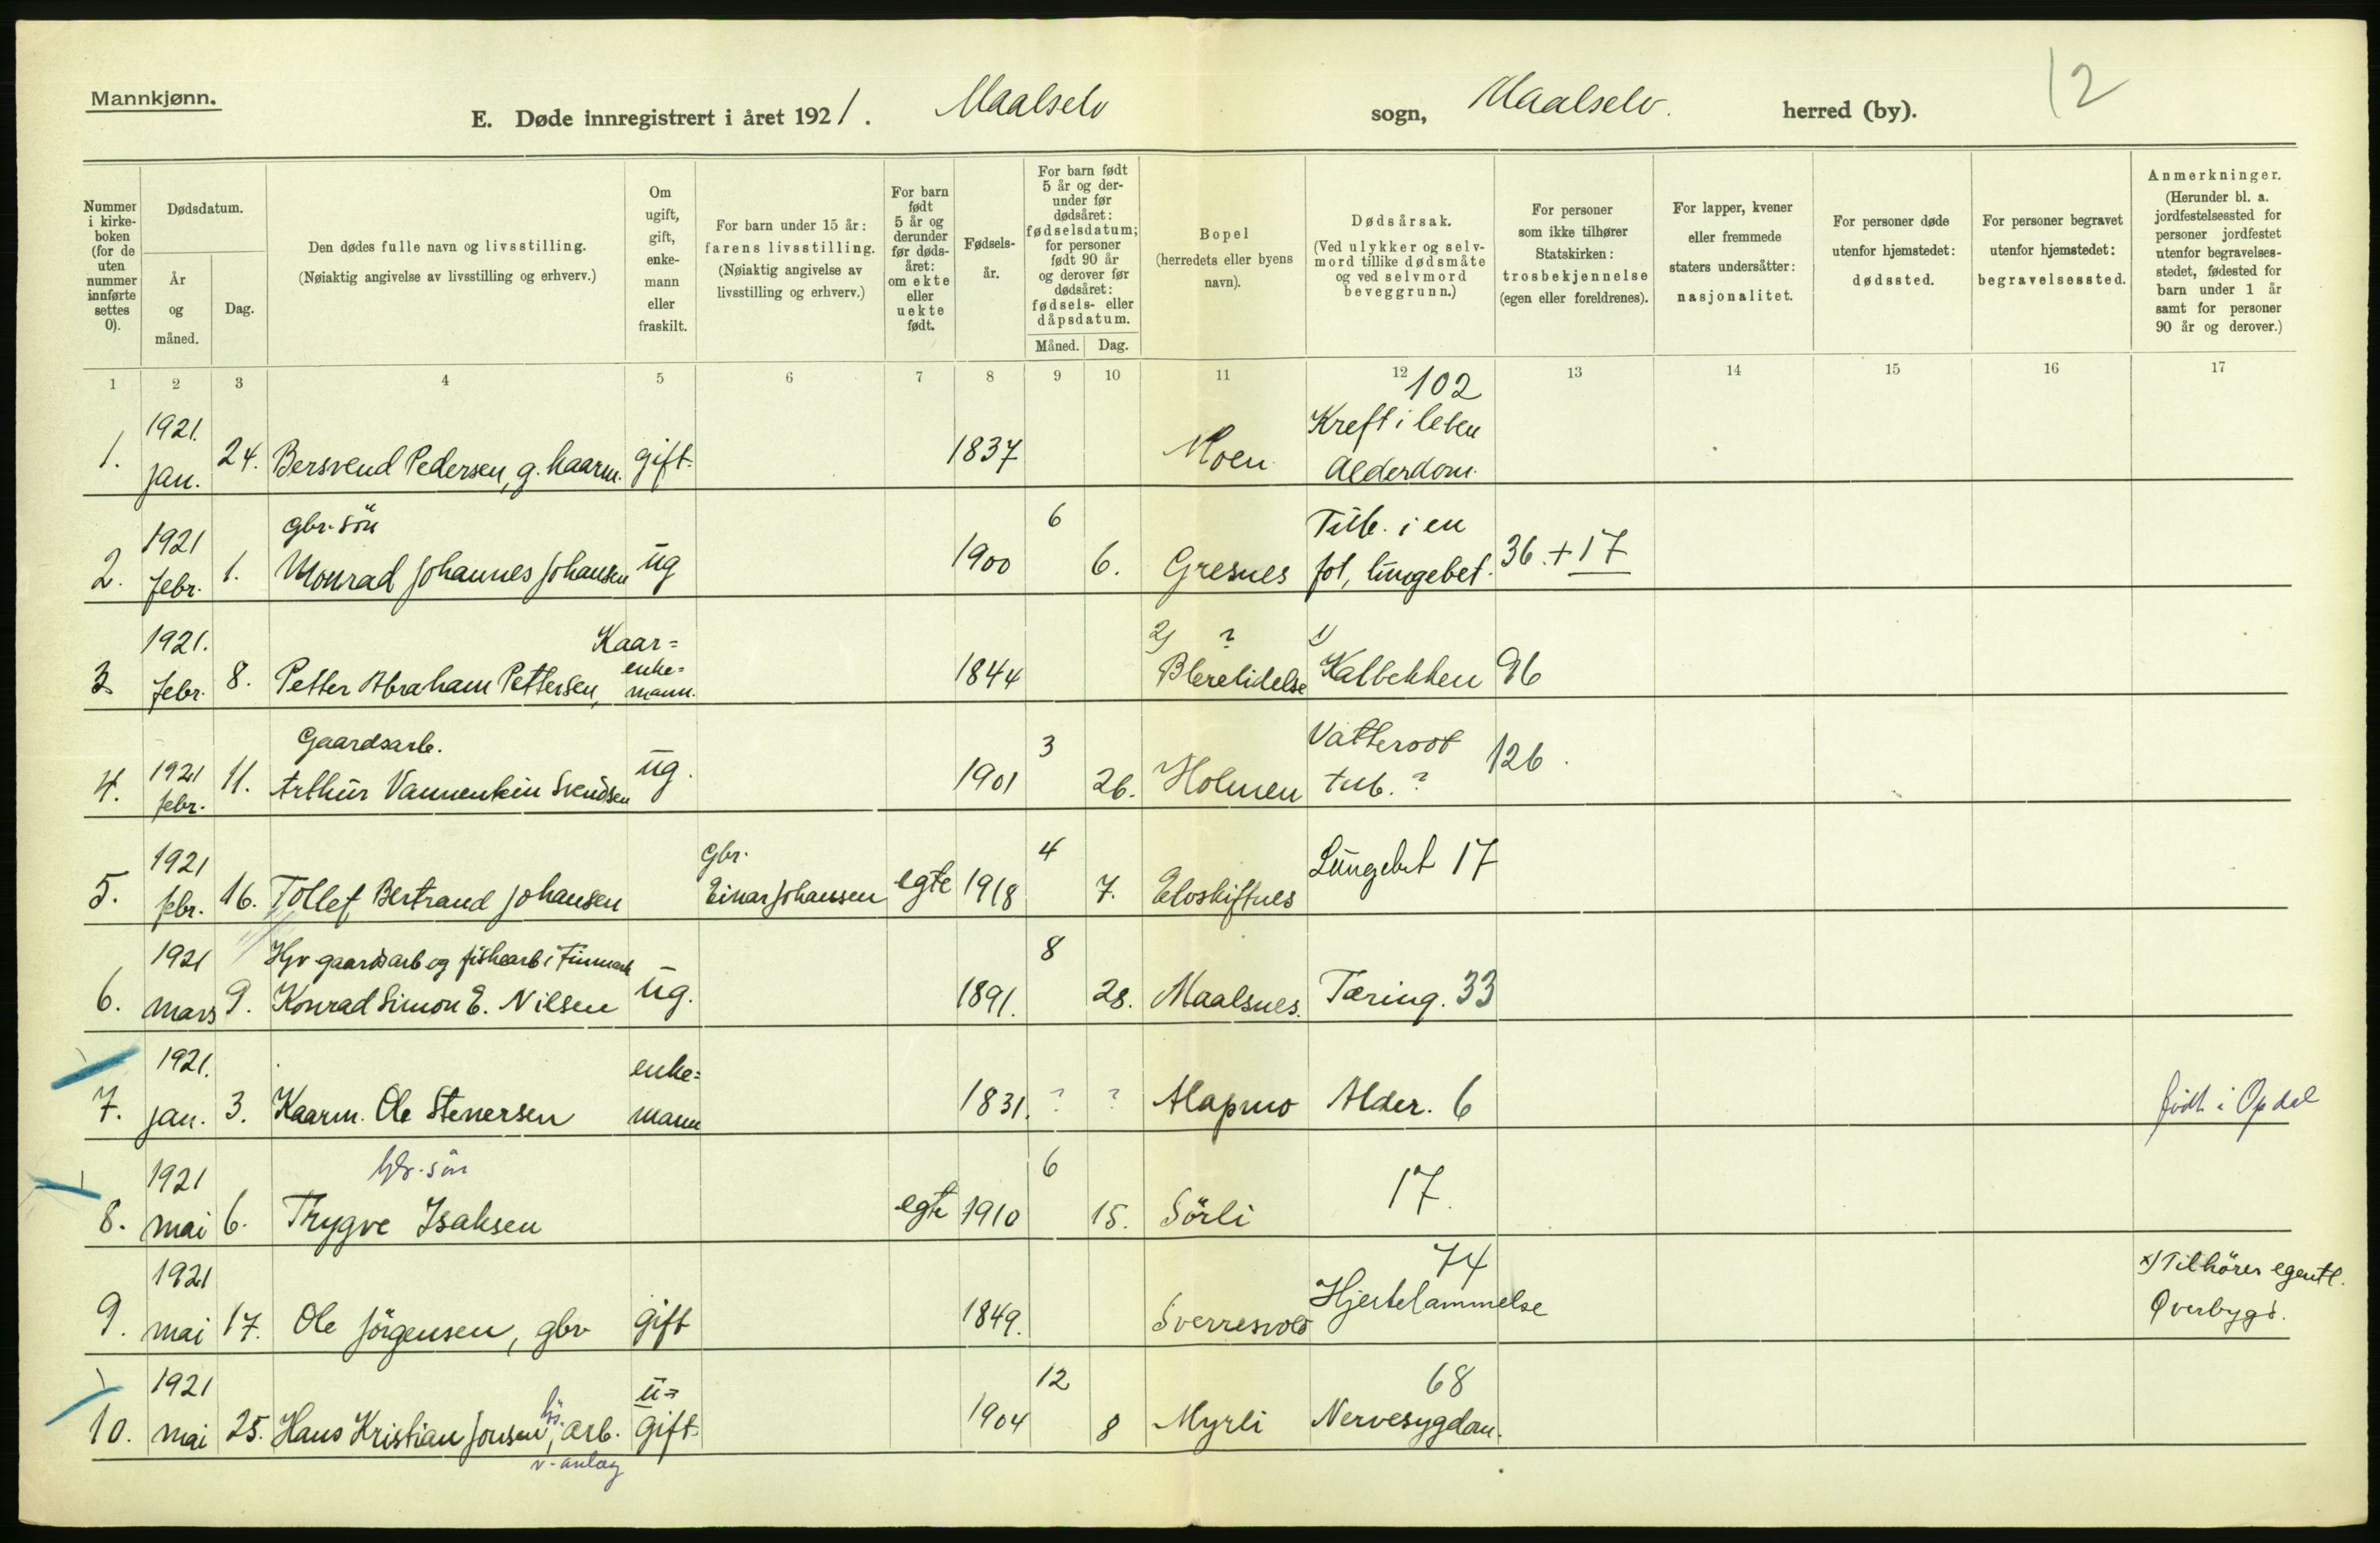 Mannkjønn.
E. Døde innregistrert i året 1921. Maalselv sogn, Maalselv. herred (by).
12
Nummer i kirke-boken (for de uten nummer innførte settes 0).
Dødsdatum.
År og måned.
Dag.
Den dødes fulle navn og livsstilling.
(Nøiaktig angivelse av livsstilling og erhverv.)
Om ugift, gift, enke-mann eller fraskilt.
For barn under 15 år: farens livsstilling.
(Nøiaktig angivelse av livsstilling og erhverv.)
For barn født 5 år og derunder før døds-året: om ekte eller uekte født.
Fødsels-år.
For barn født 5 år og der-under før dødsåret: fødselsdatum; for personer født 90 år og derover før dødsåret: fødsels- eller dåpsdatum.
Måned. Dag.
Bopel (herredets eller byens navn).
Dødsårsak.
(Ved ulykker og selv-mord tillike dødsmåte og ved selvmord beveggrunn.)
For personer som ikke tilhører Statskirken: trosbekjennelse (egen eller foreldrenes).
For lapper, kvener eller fremmede staters undersåtter: nasjonalitet.
For personer døde utenfor hjemstedet: dødssted.
For personer begravet utenfor hjemstedet: begravelsessted.
Anmerkninger.
(Herunder bl. a. jordfestelsessted for personer jordfestet utenfor begravelses-stedet, fødested for barn under 1 år samt for personer 90 år og derover.)
1 2 3 4 5 6 7 8 9 10 11 12 13 14 15 16 17
102
1. 1921. jan. 24. Bersvend Pedersen, g. kaarm. gift. 1837 Moen Kreft i leven Alderdom.
2. 1921 febr. 1. gbr. sön Monrad Johannes Johansen ug 1900 6 6. Gresnes Tub. i en fot, lungebet. 36. + 17
3 1921. febr. 8. Petter Abraham Pettersen, Kaar= enke= mann. 1844 2) ? Blerelidelse 1) Kalbekken 96
4. 1921 febr. 11. Gaardsarb. Arthur Vannenkein Svendsen ug. 1901 3 26. Holmen Vattersot tub. ? 126.
5. 1921 febr. 16. Tollef Bertrand Johansen Gbr. Einar Johansen egte 1918 4 7. Elvoskiftnes Lungebet 17
6. 1921 mars 9. Hjv gaardsarb og fiskearb i Finmark Konrad Simon E. Nilsen ug. 1891. 8 28. Maalsnes. Tæring. 33
7. 1921. jan. 3. Kaarm. Ole Stenersen enke= mann 1831. ? ? Alapmo Alder. 6 født i Opdal
8. 1921 mai 6. gbr. sön Trygve Isaksen egte 1910 6 15. Sörli 17.
9. 1921 mai 17. Ole Jörgensen, gbr gift 1849. Sverresvold 74 Hjertelammelse x) Tilhörer egentl. Överbygd.
10. 1921 mai 25. Hans Kristian Jonsen, arb. v. anlæg u= gift. 1904 12 8 Myrli 68 Nervesygdom.